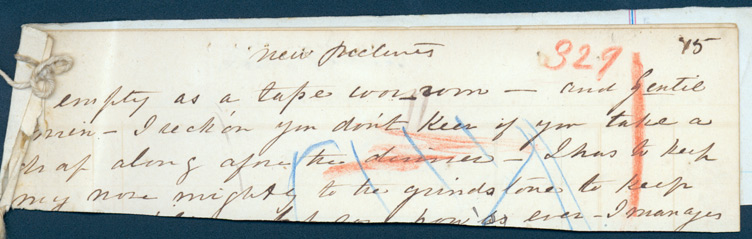 new 327 15
empty as a tape wor_wom — and Gentle
men — I reckon you don't keer if you take a
nap along afore the dinner — I has to keep
my nose mighty to the grindstone to keep
how's ever — I manages